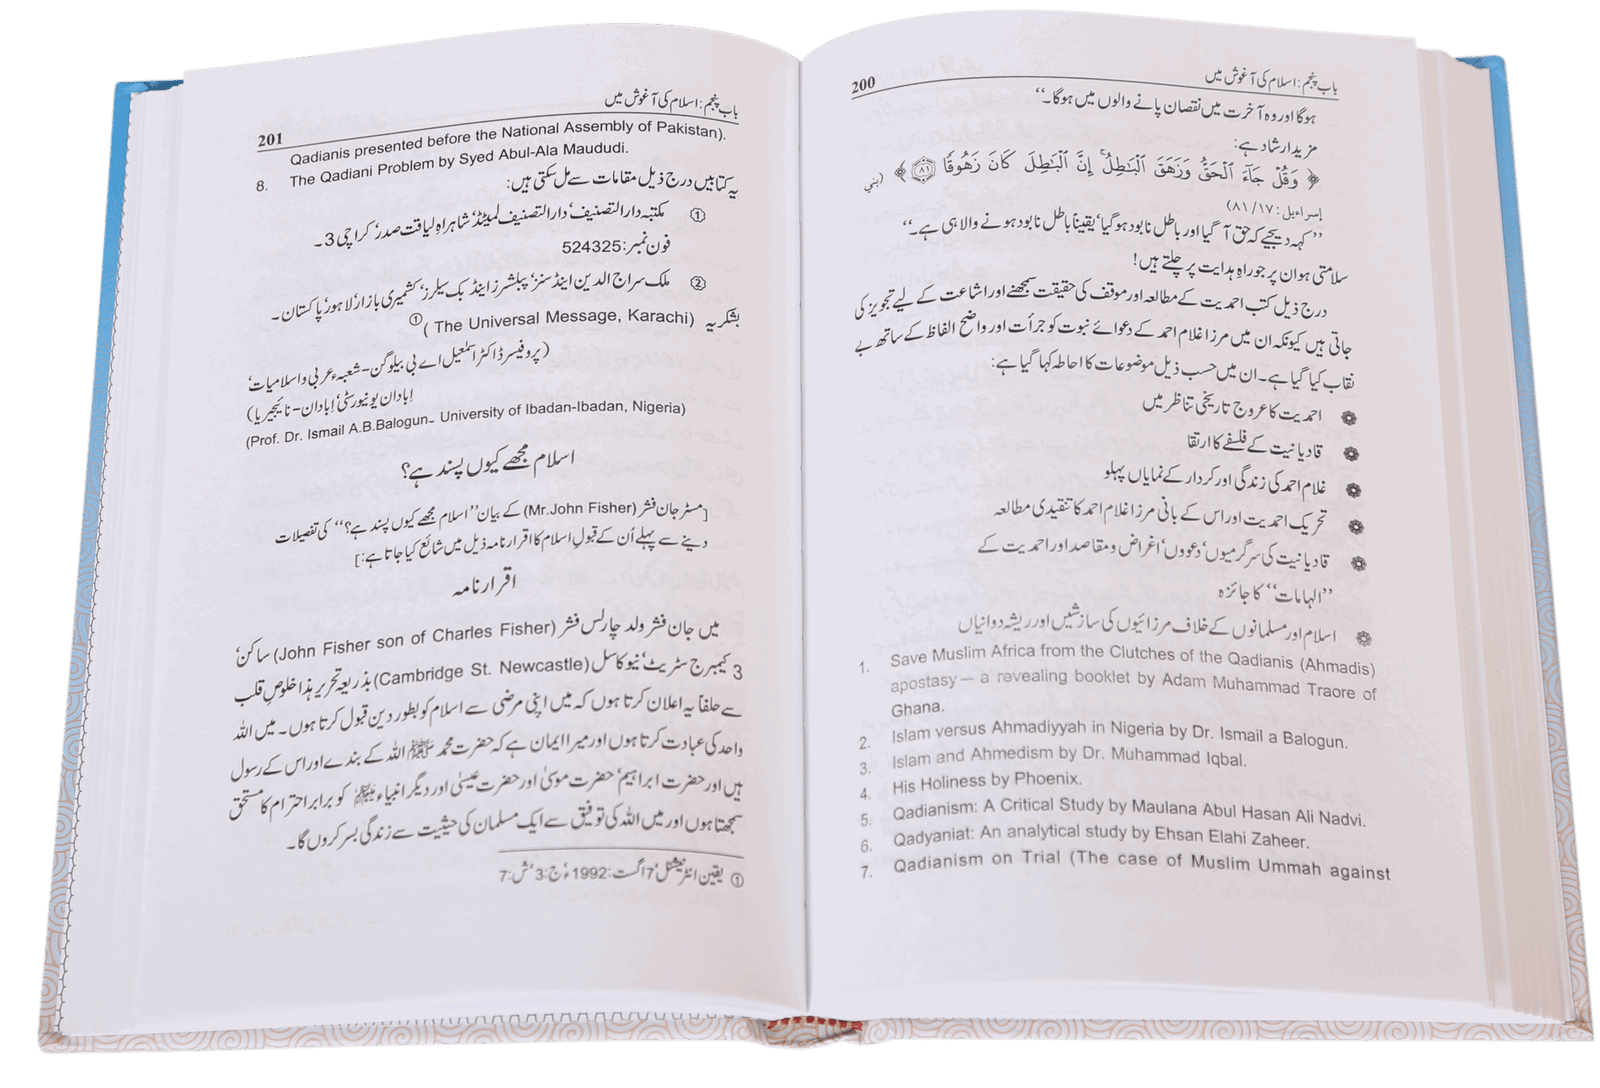 باب پنجم: اسلام کی آغوش میں
200
ہوگا اور وہ آخرت میں نقصان پانے والوں میں ہوگا۔‘‘
مزید ارشاد ہے:
﴿ وَقُلْ جَآءَ ٱلْحَقُّ وَزَهَقَ ٱلْبَٰطِلُ ۚ إِنَّ ٱلْبَٰطِلَ كَانَ زَهُوقًا ۝٨١ ﴾ (بني
إسراءيل: ٨١/١٧)
’’کہہ دیجیے کہ حق آ گیا اور باطل نابود ہوگیا‘ یقیناً باطل نابود ہونے والا ہی ہے۔‘‘
سلامتی ہو ان پر جو راہِ ہدایت پر چلتے ہیں!
درج ذیل کتب احمدیت کے مطالعہ اور موقف کی حقیقت سمجھنے اور اشاعت کے لیے تجویز کی
جاتی ہیں کیونکہ ان میں مرزا غلام احمد کے دعوائے نبوت کو جرأت اور واضح الفاظ کے ساتھ بے
نقاب کیا گیا ہے۔ ان میں حسب ذیل موضوعات کا احاطہ کہا گیا ہے:
احمدیت کا عروج تاریخی تناظر میں
قادیانیت کے فلسفے کا ارتقا
غلام احمد کی زندگی اور کردار کے نمایاں پہلو
تحریک احمدیت اور اس کے بانی مرزا غلام احمد کا تنقیدی مطالعہ
قادیانیت کی سرگرمیوں‘ دعووں‘ اغراض و مقاصد اور احمدیت کے
’’الہامات‘‘ کا جائزہ
اسلام اور مسلمانوں کے خلاف مرزائیوں کی سازشیں اور ریشہ دوانیاں
1. Save Muslim Africa from the Clutches of the Qadianis (Ahmadis)
apostasy — a revealing booklet by Adam Muhammad Traore of
Ghana.
2. Islam versus Ahmadiyyah in Nigeria by Dr. Ismail a Balogun.
3. Islam and Ahmedism by Dr. Muhammad Iqbal.
4. His Holiness by Phoenix.
5. Qadianism: A Critical Study by Maulana Abul Hasan Ali Nadvi.
6. Qadyaniat: An analytical study by Ehsan Elahi Zaheer.
7. Qadianism on Trial (The case of Muslim Ummah against
باب پنجم: اسلام کی آغوش میں
201
Qadianis presented before the National Assembly of Pakistan).
8. The Qadiani Problem by Syed Abul-Ala Maududi.
یہ کتابیں درج ذیل مقامات سے مل سکتی ہیں:
① مکتبہ دار التصنیف‘ دار التصنیف لمیٹڈ‘ شاہراہِ لیاقت صدر‘ کراچی 3۔
فون نمبر: 524325
② ملک سراج الدین اینڈ سنز‘ پبلشرز اینڈ بک سیلرز‘ کشمیری بازار‘ لاہور‘ پاکستان۔
بشکریہ (The Universal Message, Karachi) ①
(پروفیسر ڈاکٹر اسمعیل اے بی بیلوگن - شعبہء عربی و اسلامیات‘
اِبادان یونیورسٹی‘ اِبادان - نائیجیریا)
(Prof. Dr. Ismail A.B.Balogun- University of Ibadan-Ibadan, Nigeria)
اسلام مجھے کیوں پسند ہے؟
[مسٹر جان فشر (Mr.John Fisher) کے بیان ’’اسلام مجھے کیوں پسند ہے؟‘‘ کی تفصیلات
دینے سے پہلے اُن کے قبولِ اسلام کا اقرار نامہ ذیل میں شائع کیا جاتا ہے:]
اقرار نامہ
میں جان فشر ولد چارلس فشر (John Fisher son of Charles Fisher) ساکن‘
3 کیمبرج سٹریٹ‘ نیو کاسل (Cambridge St. Newcastle) بذریعہ تحریر ہذا خلوصِ قلب
سے حلفاً یہ اعلان کرتا ہوں کہ میں اپنی مرضی سے اسلام کو بطور دین قبول کرتا ہوں۔ میں اللہ
واحد کی عبادت کرتا ہوں اور میرا ایمان ہے کہ حضرت محمد ﷺ اللہ کے بندے اور اس کے رسول
ہیں اور حضرت ابراہیم‘ حضرت موسیٰ اور حضرت عیسیٰ اور دیگر انبیاء ﷺ کو برابر احترام کا مستحق
سمجھتا ہوں اور میں اللہ کی توفیق سے ایک مسلمان کی حیثیت سے زندگی بسر کروں گا۔
① یقین انٹرنیشنل‘ 7 اگست: 1992ء‘ ج: 3‘ ش: 7